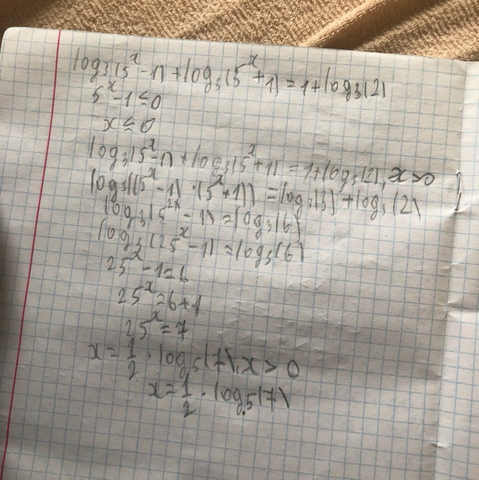 log₃(5ˣ-1)+log₃(5ˣ+1)=1+log₃(2)
5ˣ-1≤0
x≤0
log₃(5ˣ-1)+log₃(5ˣ+1)=1+log₃(2), x>0
log₃((5ˣ-1)·(5ˣ+1))=log₃(3)+log₃(2)
log₃(5²ˣ-1)=log₃(6)
log₃(25ˣ-1)=log₃(6)
25ˣ-1=6
25ˣ=6+1
25ˣ=7
x=1/2·log₅(7), x>0
x=1/2·log₅(7)